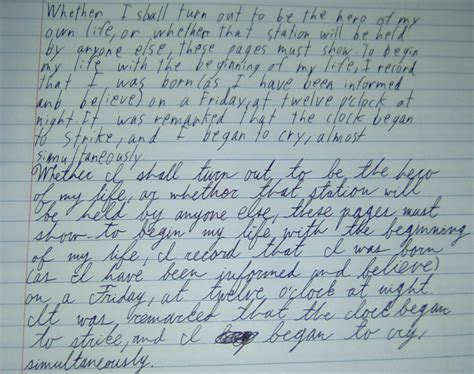 Whether I shall turn out to be the hero of my
own life, or whether that station will be held
by anyone else, these pages must show. To begin
my life with the beginning of my life, I record
that I was born (as I have been informed
and believe) on a Friday, at twelve o'clock at
night. It was remarked that the clock began
to strike, and I began to cry, almost
simultaneously.
Whether I shall turn out, to be the hero
of my life, or whether that station will
be held by anyone else, these pages must
show. To begin my life with the beginning
of my life, I record that I was born
(as I have been informed and believe)
on a Friday, at twelve o'clock at night.
It was remarked that the clock began
to strice, and I began to cry,
simultaneously.